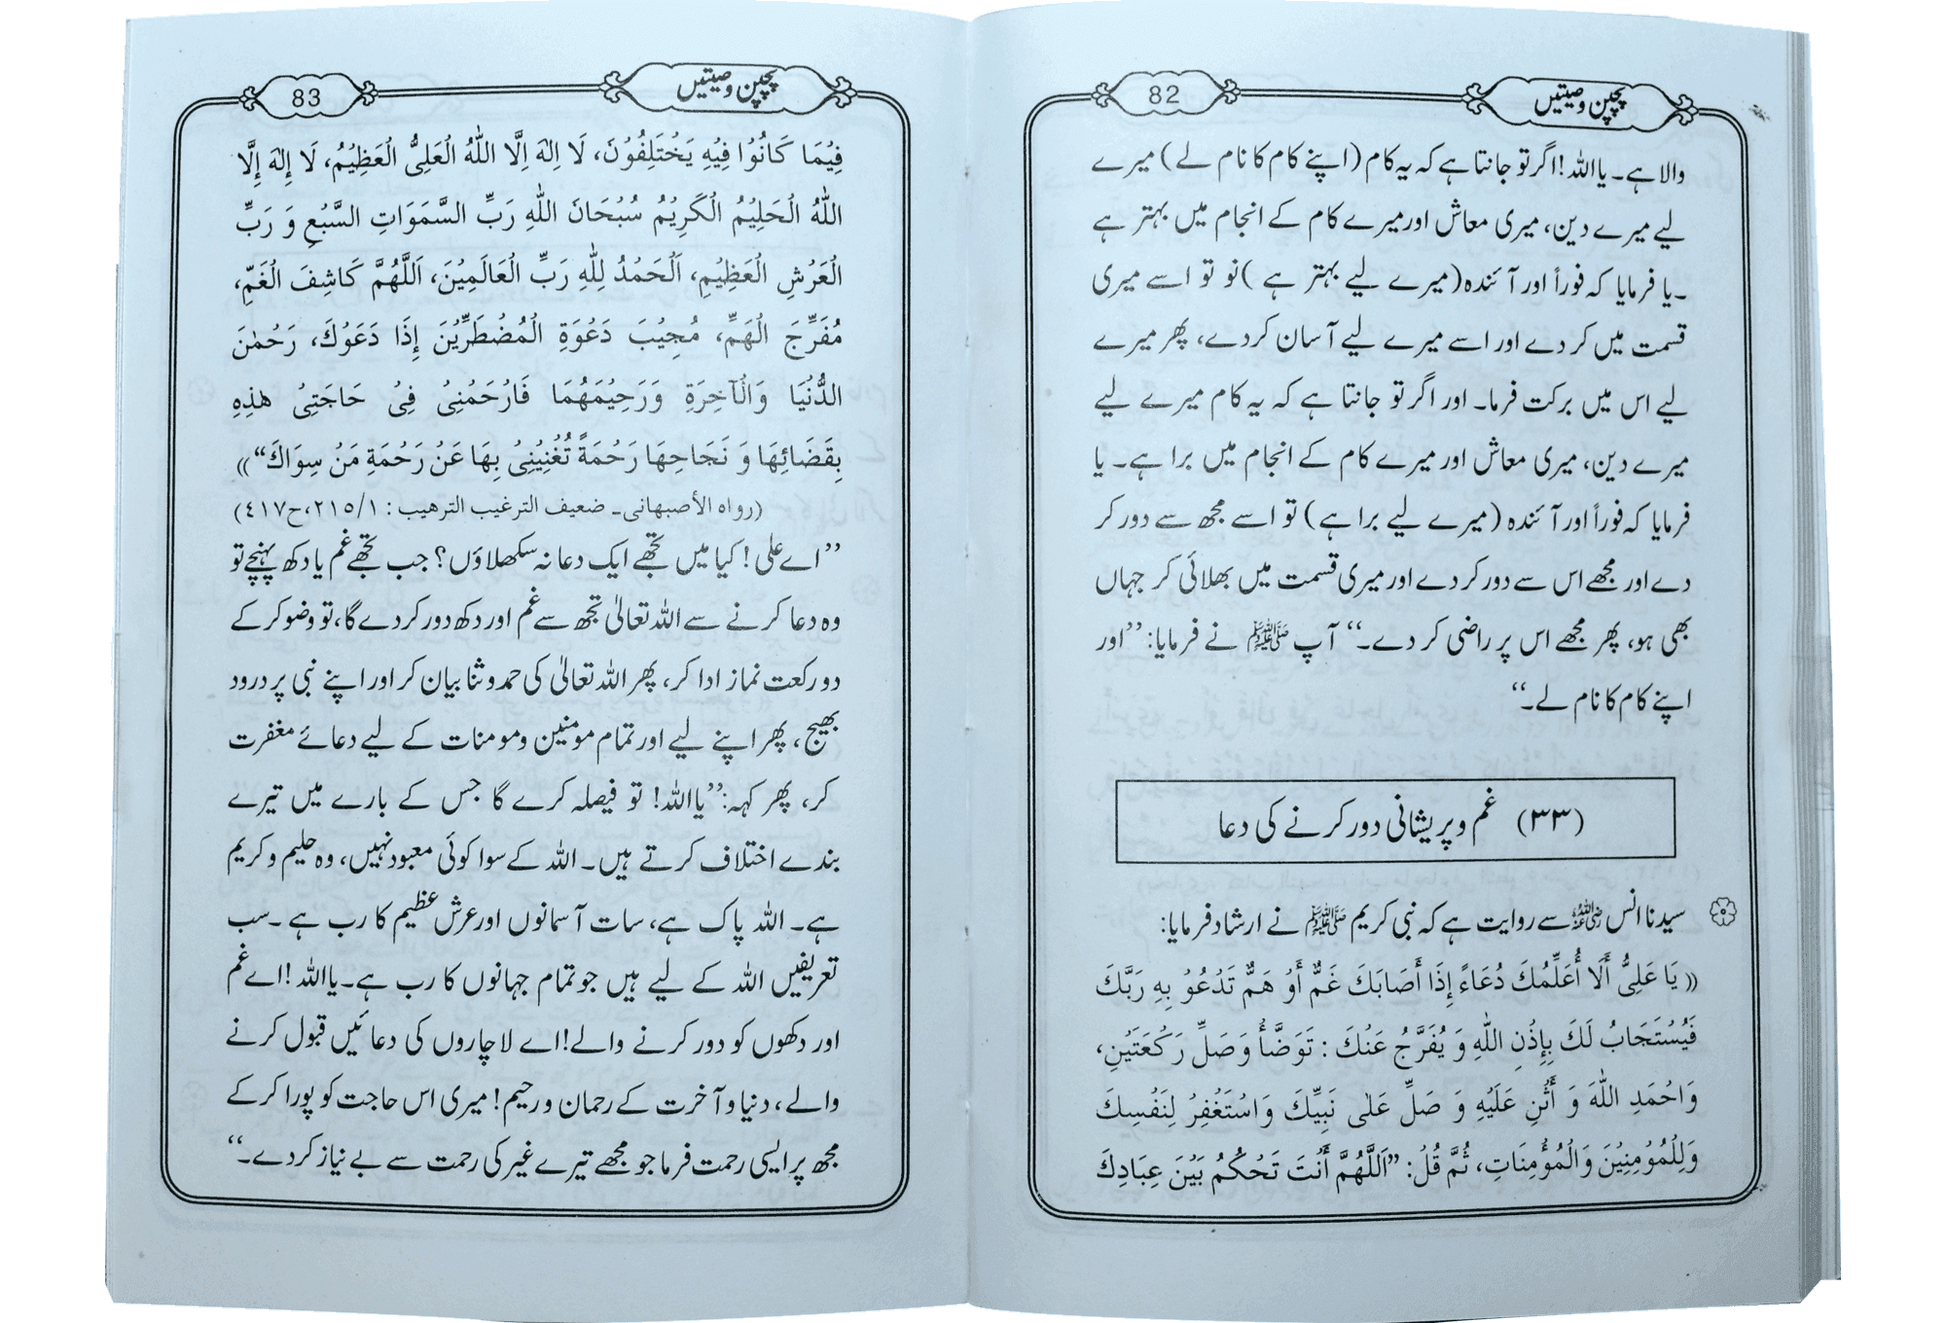 پچپن وصیتیں
82
والا ہے۔ یااللہ! اگر تو جانتا ہے کہ یہ کام (اپنے کام کا نام لے) میرے
لیے میرے دین، میری معاش اور میرے کام کے انجام میں بہتر ہے
۔یا فرمایا کہ فوراً اور آئندہ (میرے لیے بہتر ہے) نو تو اسے میری
قسمت میں کر دے اور اسے میرے لیے آسان کر دے، پھر میرے
لیے اس میں برکت فرما۔ اور اگر تو جانتا ہے کہ یہ کام میرے لیے
میرے دین، میری معاش اور میرے کام کے انجام میں برا ہے۔ یا
فرمایا کہ فوراً اور آئندہ (میرے لیے برا ہے) تو اسے مجھ سے دور کر
دے اور مجھے اس سے دور کر دے اور میری قسمت میں بھلائی کر جہاں
بھی ہو، پھر مجھے اس پر راضی کر دے۔‘‘ آپ ﷺ نے فرمایا: ’’اور
اپنے کام کا نام لے۔‘‘
(۳۳) غم و پریشانی دور کرنے کی دعا
سیدنا انس رضی اللہ عنہ سے روایت ہے کہ نبی کریم ﷺ نے ارشاد فرمایا:
((يَا عَلِيُّ أَلَا أُعَلِّمُكَ دُعَاءً إِذَا أَصَابَكَ غَمٌّ أَوْ هَمٌّ تَدْعُوْ بِهِ رَبَّكَ
فَيُسْتَجَابُ لَكَ بِإِذْنِ اللّٰهِ وَ يُفَرَّجُ عَنْكَ : تَوَضَّأْ وَصَلِّ رَكْعَتَيْنِ،
وَاحْمَدِ اللّٰهَ وَ أَثْنِ عَلَيْهِ وَ صَلِّ عَلٰى نَبِيِّكَ وَاسْتَغْفِرْ لِنَفْسِكَ
وَلِلْمُؤْمِنِيْنَ وَالْمُؤْمِنَاتِ، ثُمَّ قُلْ: ’’اَللّٰهُمَّ أَنْتَ تَحْكُمُ بَيْنَ عِبَادِكَ
پچپن وصیتیں
83
فِيْمَا كَانُوْا فِيْهِ يَخْتَلِفُوْنَ، لَا إِلٰهَ إِلَّا اللّٰهُ الْعَلِيُّ الْعَظِيْمُ، لَا إِلٰهَ إِلَّا
اللّٰهُ الْحَلِيْمُ الْكَرِيْمُ سُبْحَانَ اللّٰهِ رَبِّ السَّمَوَاتِ السَّبْعِ وَ رَبِّ
الْعَرْشِ الْعَظِيْمِ، اَلْحَمْدُ لِلّٰهِ رَبِّ الْعَالَمِيْنَ، اَللّٰهُمَّ كَاشِفَ الْغَمِّ،
مُفَرِّجَ الْهَمِّ، مُجِيْبَ دَعْوَةِ الْمُضْطَرِّيْنَ إِذَا دَعَوْكَ، رَحْمٰنَ
الدُّنْيَا وَالْآخِرَةِ وَرَحِيْمَهُمَا فَارْحَمْنِيْ فِيْ حَاجَتِيْ هٰذِهِ
بِقَضَائِهَا وَ نَجَاحِهَا رَحْمَةً تُغْنِيْنِيْ بِهَا عَنْ رَحْمَةِ مَنْ سِوَاكَ‘‘))
(رواه الأصبهانى۔ ضعيف الترغيب الترهيب : ١/٢١٥، ح٤١٧)
’’اے علی! کیا میں تجھے ایک دعا نہ سکھلاؤں؟ جب تجھے غم یا دکھ پہنچے تو
وہ دعا کرنے سے اللہ تعالیٰ تجھ سے غم اور دکھ دور کر دے گا، تو وضو کر کے
دو رکعت نماز ادا کر، پھر اللہ تعالیٰ کی حمد و ثنا بیان کر اور اپنے نبی پر درود
بھیج، پھر اپنے لیے اور تمام مومنین ومومنات کے لیے دعائے مغفرت
کر، پھر کہہ: ’’یااللہ! تو فیصلہ کرے گا جس کے بارے میں تیرے
بندے اختلاف کرتے ہیں۔ اللہ کے سوا کوئی معبود نہیں، وہ حلیم و کریم
ہے۔ اللہ پاک ہے، سات آسمانوں اور عرش عظیم کا رب ہے ۔سب
تعریفیں اللہ کے لیے ہیں جو تمام جہانوں کا رب ہے۔ یااللہ! اے غم
اور دکھوں کو دور کرنے والے! اے لاچاروں کی دعائیں قبول کرنے
والے، دنیا و آخرت کے رحمان و رحیم! میری اس حاجت کو پورا کر کے
مجھ پر ایسی رحمت فرما جو مجھے تیرے غیر کی رحمت سے بے نیاز کر دے۔‘‘